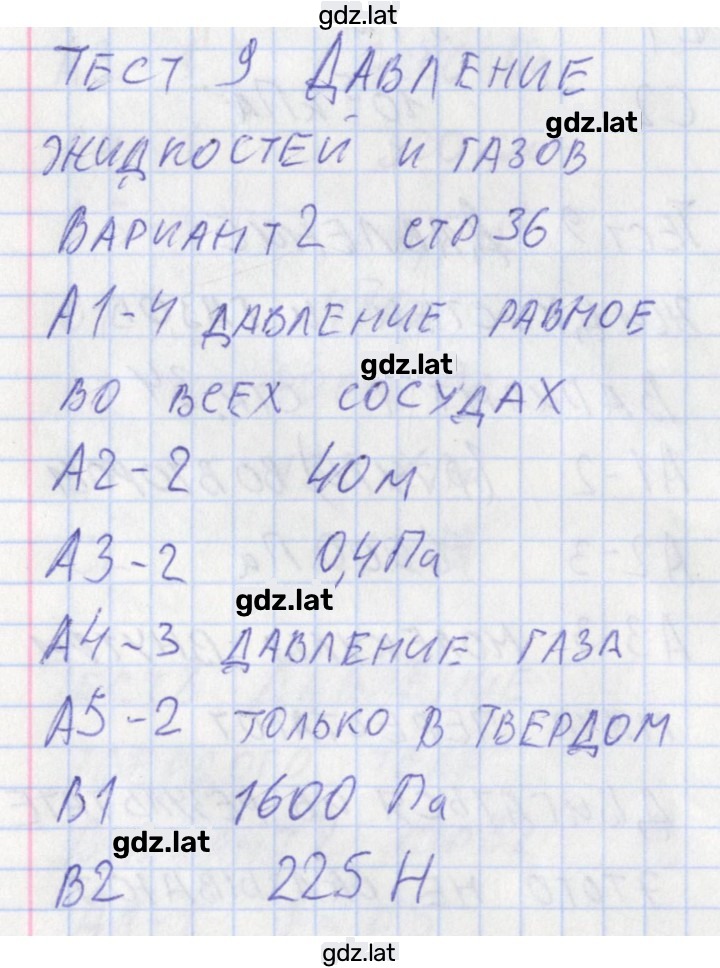 gdz.lat
ТЕСТ 9 ДАВЛЕНИЕ
gdz.lat
ЖИДКОСТЕЙ И ГАЗОВ
ВАРИАНТ 2 СТР 36
А1-4 ДАВЛЕНИЕ РАВНОЕ
gdz.lat
ВО ВСЕХ СОСУДАХ
А2-2 40 м
А3-2 0,4 Па
gdz.lat
А4-3 ДАВЛЕНИЕ ГАЗА
А5-2 ТОЛЬКО В ТВЕРДОМ
В1 1600 Па
gdz.lat
В2 225 Н
gdz.lat